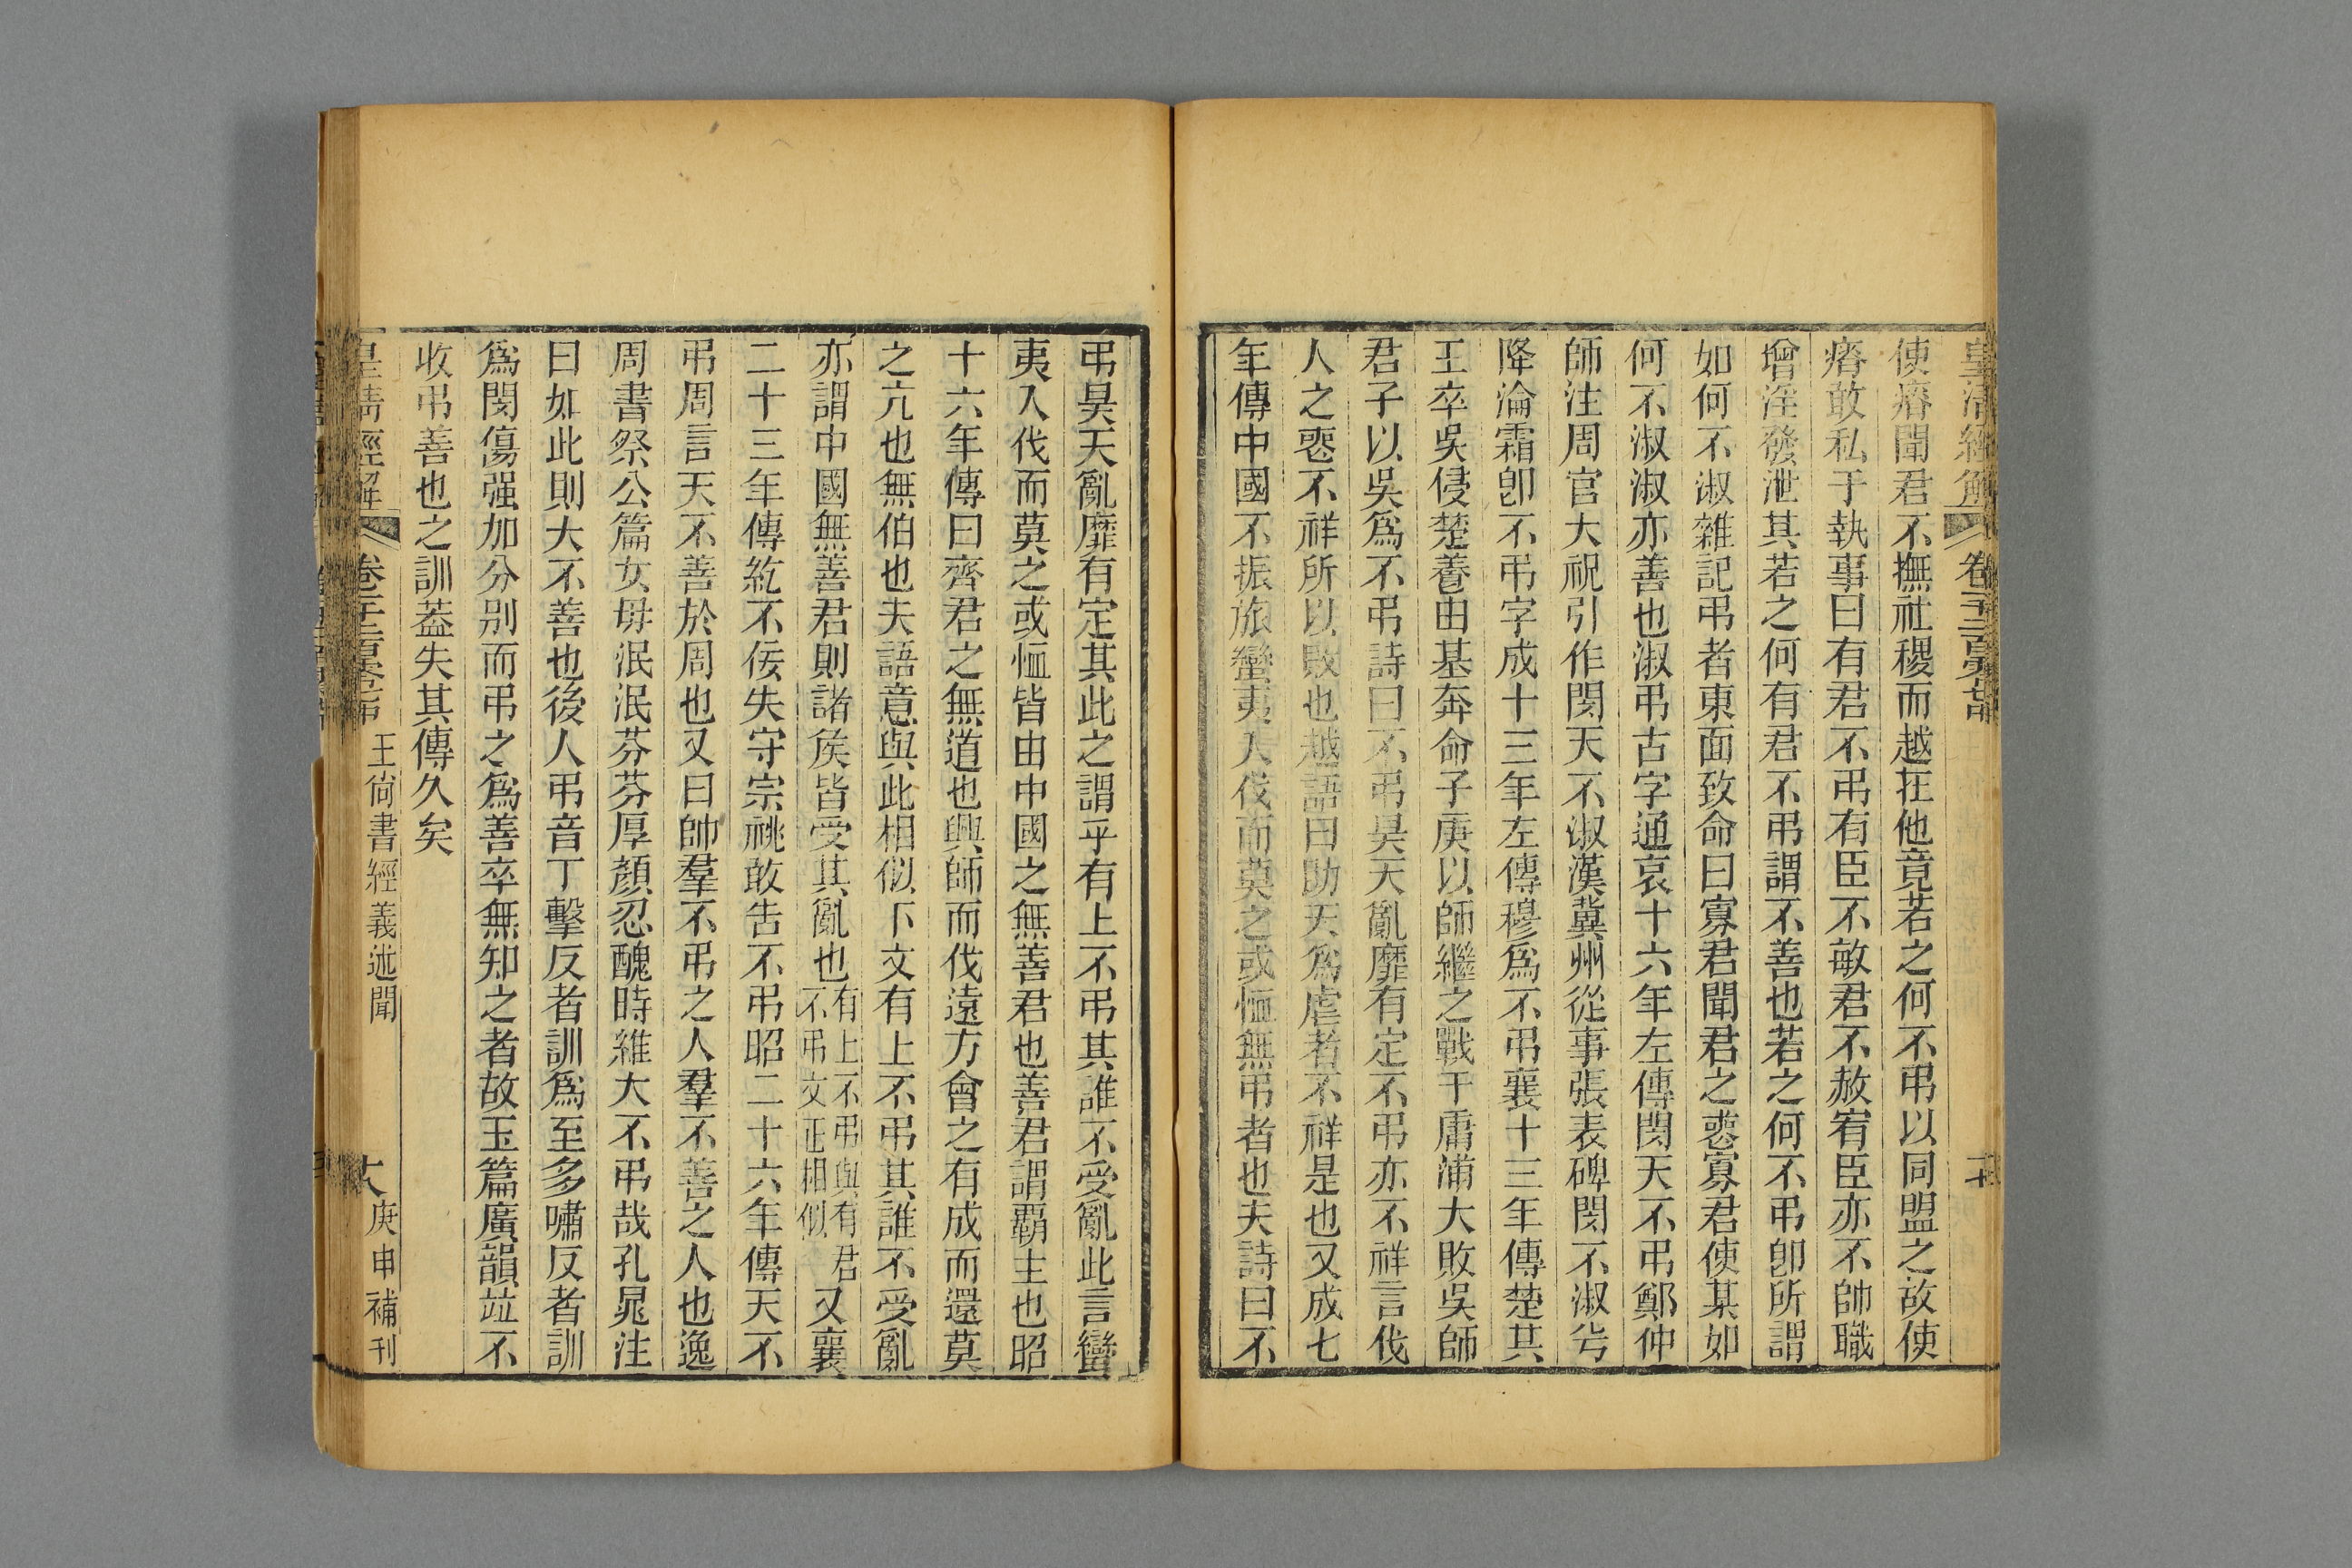 皇清經解
使瘠聞君不撫社稷而越在他竟若之何不弔以同盟之故使
瘠敢私于執事曰有君不弔有臣不敏君不赦宥臣亦不帥職
增淫發泄其若之何有君不弔謂不善也若之何不弔卽所謂
如何不淑雜記弔者東面致命曰寡君聞君之戹寡君使某如
何不淑淑亦善也淑弔古字通哀十六年左傳閔天不弔鄭仲
師注周官大祝引作閔天不淑漢冀州從事張表碑閔不淑兮
降淪霜卽不弔字成十三年左傳穆爲不弔襄十三年傳楚共
王卒吳侵楚養由基奔命子庚以師繼之戰于庸浦大敗吳師
君子以吳爲不弔詩曰不弔昊天亂靡有定不弔亦不祥言伐
人之喪不祥所以敗也越語曰助天爲虐者不祥是也又成七
年傳中國不振旅蠻夷入伐而莫之或恤無弔者也夫詩曰不
弔昊天亂靡有定其此之謂乎有上不弔其誰不受亂此言蠻
夷入伐而莫之或恤皆由中國之無善君也善君謂霸主也昭
十六年傳曰齊君之無道也興師而伐遠方會之有成而還莫
之亢也無伯也夫語意與此相似下文有上不弔其誰不受亂
亦謂中國無善君則諸矦皆受其亂也有上不弔與有君不弔文正相似又襄
二十三年傳紇不佞失守宗祧敢告不弔昭二十六年傳天不
弔周言天不善於周也又曰帥羣不弔之人羣不善之人也逸
周書祭公篇女毋泯泯芬芬厚顏忍醜時維大不弔哉孔晁注
曰如此則大不善也後人弔音丁擊反者訓爲至多嘯反者訓
爲閔傷强加分別而弔之爲善卒無知之者故玉篇廣韻竝不
收弔善也之訓蓋失其傳久矣
皇清經解 王尙書經義述聞 庚申補刊